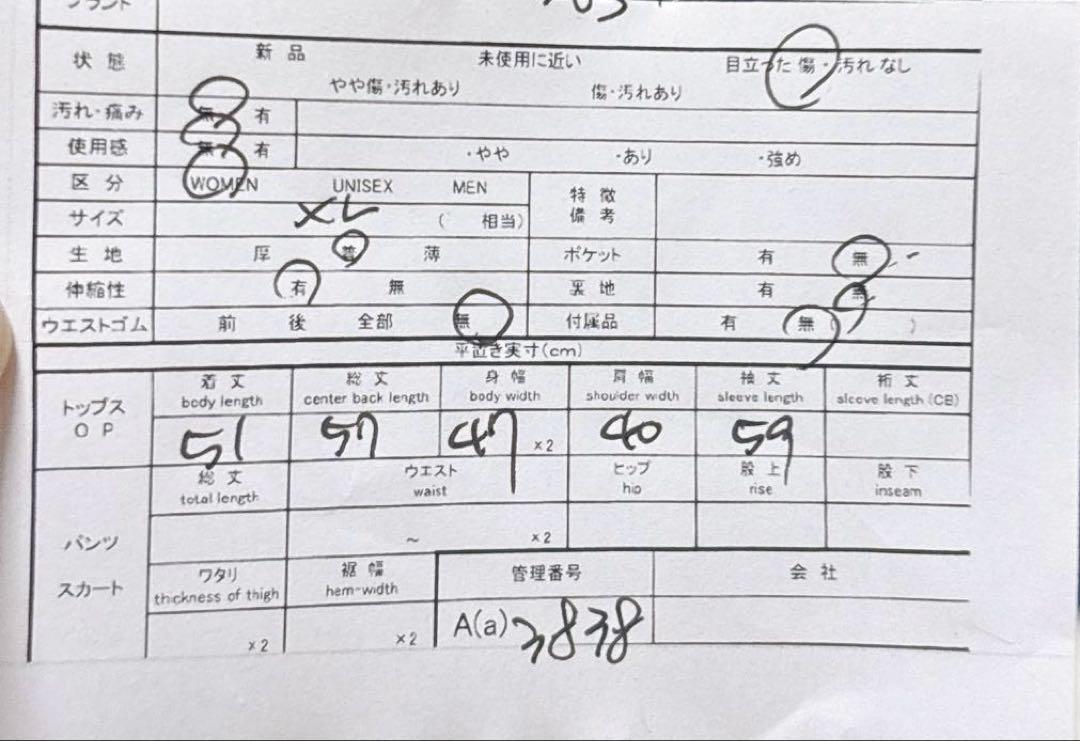 ブランド
状態 新品 未使用に近い 目立った傷・汚れなし
やや傷・汚れあり 傷・汚れあり
汚れ・痛み 無 有
使用感 無 有 ・やや ・あり ・強め
区分 WOMEN UNISEX MEN 特徴
備考
サイズ XL ( 相当)
生地 厚 普 薄 ポケット 有 無
伸縮性 有 無 裏地 有 無
ウエストゴム 前 後 全部 無 付属品 有 無( )
平置き実寸(cm)
トップス
OP
着丈 総丈 身幅 肩幅 袖丈 裄丈
body length center back length body width shoulder width sleeve length sleeve length (CB)
51 57 47 ×2 40 59
パンツ
スカート
総丈 ウエスト ヒップ 股上 股下
total length waist hip rise inseam
～ ×2
ワタリ 裾幅 管理番号 会社
thickness of thigh hem-width
×2 ×2 A(a) 3838